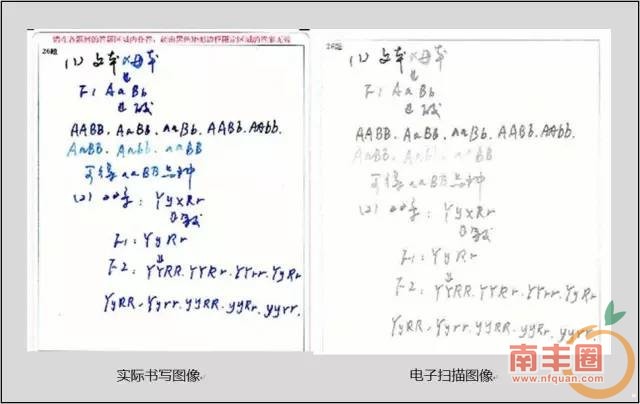 请在各题目的答题区域内作答，超出黑色矩形边框限定区域的答案无效
26题
(1) 父本×母本
F1 AaBb
AABB. AaBb. aaBb. AABb. AAbb.
AaBB. Aabb. aaBB
可得aaBB品种
(2)  亲本: Yy×Rr
F1: YyRr
F2: YYRR. YYRr. YYrr. YyRr
YyRR. Yyrr. yyRR. yyRr. yyrr.
26题
(1) 父本×母本
F1 AaBb
AABB. AaBb. aaBb. AABb. AAbb.
AaBB. Aabb. aaBB
可得aaBB品种
(2) : Yy×Rr
F1: YyRr
F2: YYRR. YYRr. YYrr. YyRr
YyRR. Yyrr. yyRR. yyRr. yyrr.
实际书写图像
电子扫描图像
南丰圈
www.nfquan.com